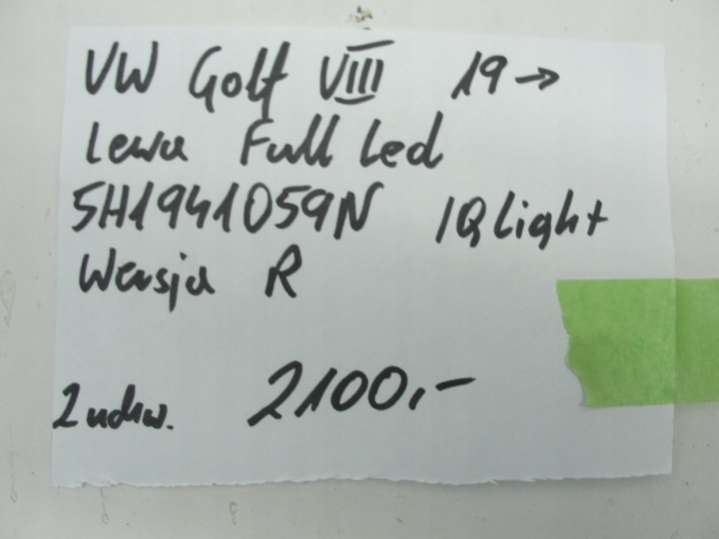 VW Golf VIII 19→
Lewa Full Led
5H1941059N IQLight
Wersja R
2uchw. 2100,-